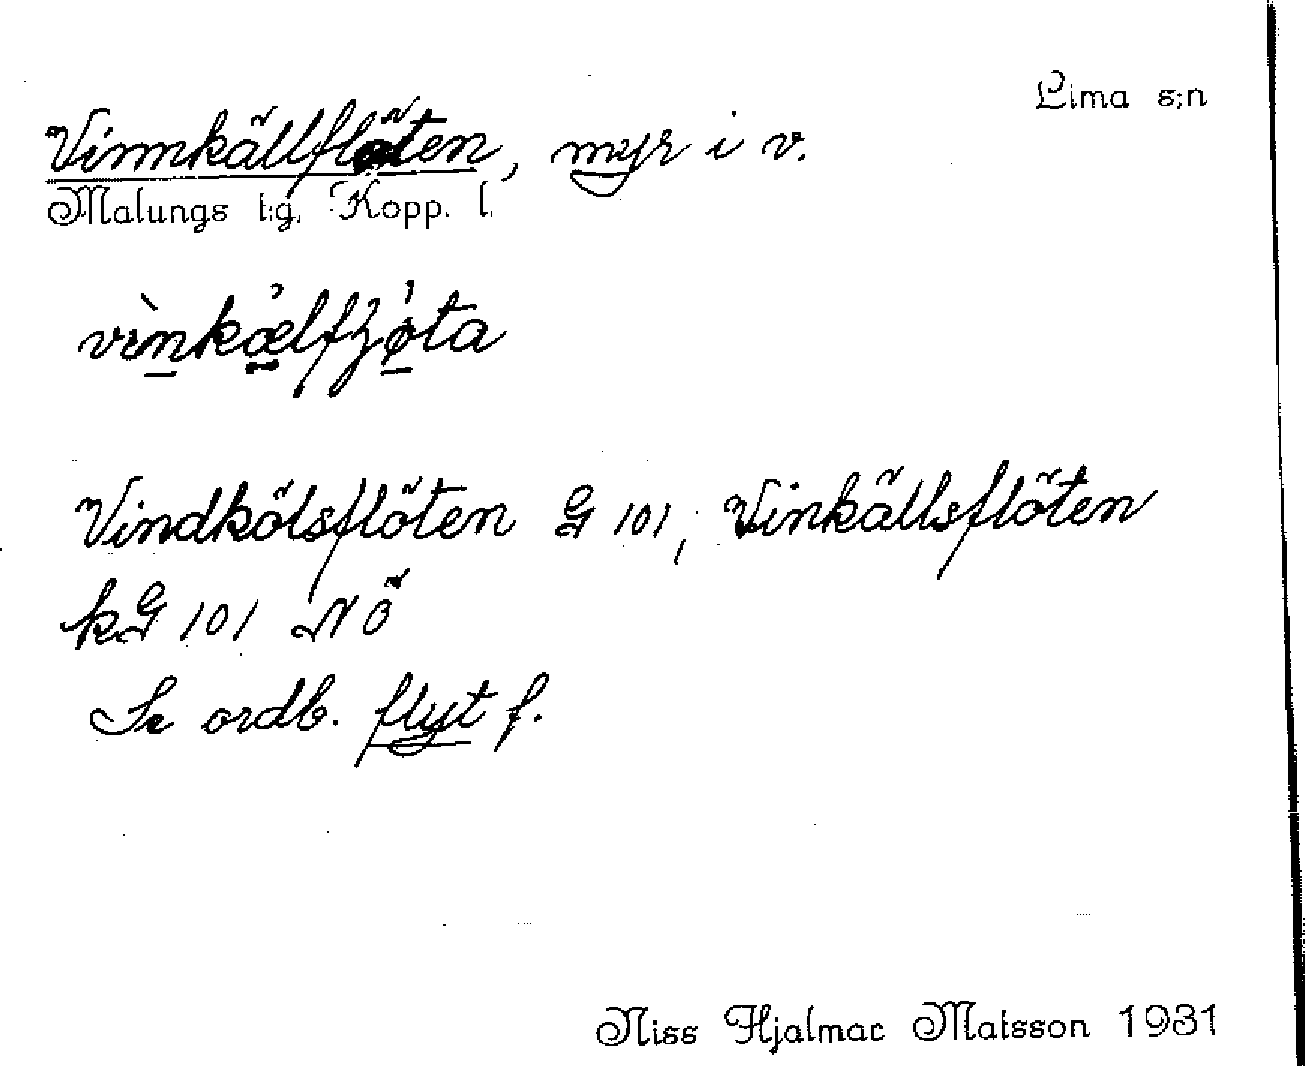 Lima s:n
Vinnkällflöten, myr i v.
Malungs t:g. Kopp. l.
vìnkælfʒøta
Vindkölsflöten G 101, Vinkällsflöten
kG 101 NÖ
Se ordb. flyt f.
Niss Hjalmar Matsson 1931